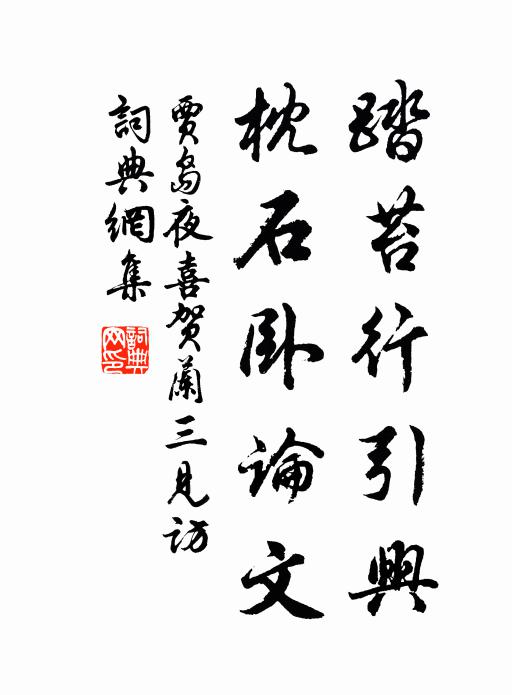 踏苔行引興
枕石卧論文
賈島夜喜贺蘭三見訪
詞典網集
詞典网印